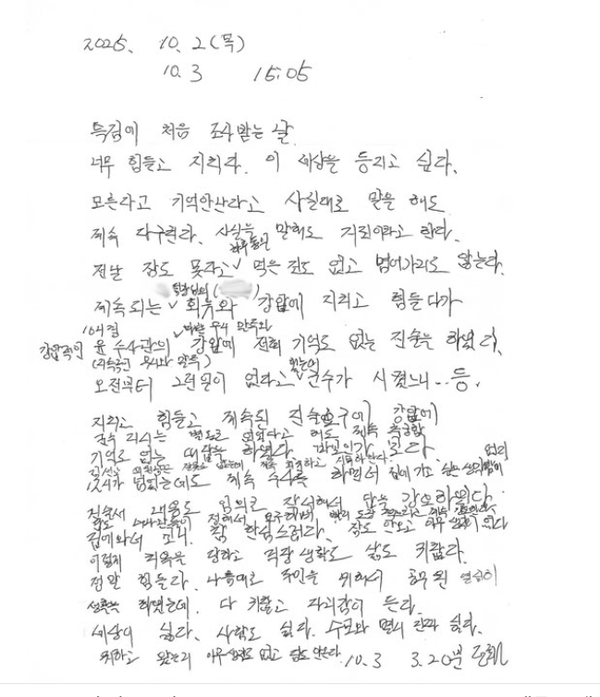 2025. 10. 2 (목)
10. 3 15:05
특검에 처음 조사받는 날
너무 힘들고 지치다. 이 세상을 등지고 싶다.
모른다고 기억안난다고 사실대로 말을 해도
계속 다구친다. 사실을 말해도 거짓이라고 한다.
하루종일
전날 잠도 못자고 먹은 것도 없고
계속되는 회유와 강압에 지치고 힘들다가
강압적인 윤 수사관의 강압에 전혀 기억도 없는 진술을 하였다.
오전부터 그런일이 없다고 군수가 시켰느니... 등.
지치고 힘들고 계속된 진술요구에 강압에
기억도 없는 대답을 하였다.
12시가 넘었는데도 계속 수사를 하면서 집에 가고 싶은 생각밖에
진술서 내용도 임의로 작성해서 답을 강요하였다.
집에와서 보니 참 한심스럽다. 잠도 안오고 아무 생각이 없다
이렇게 치욕을 당하고 직장생활도 삶도 귀찮다.
정말 힘들다. 나름대로 주민을 위해서 공무원 열심히
생활을 하였는데. 다 귀찮고 자괴감이 든다.
세상이 싫다. 사람도 싫다. 수모와 멸시 진짜 싫다.
10. 3 3.20분